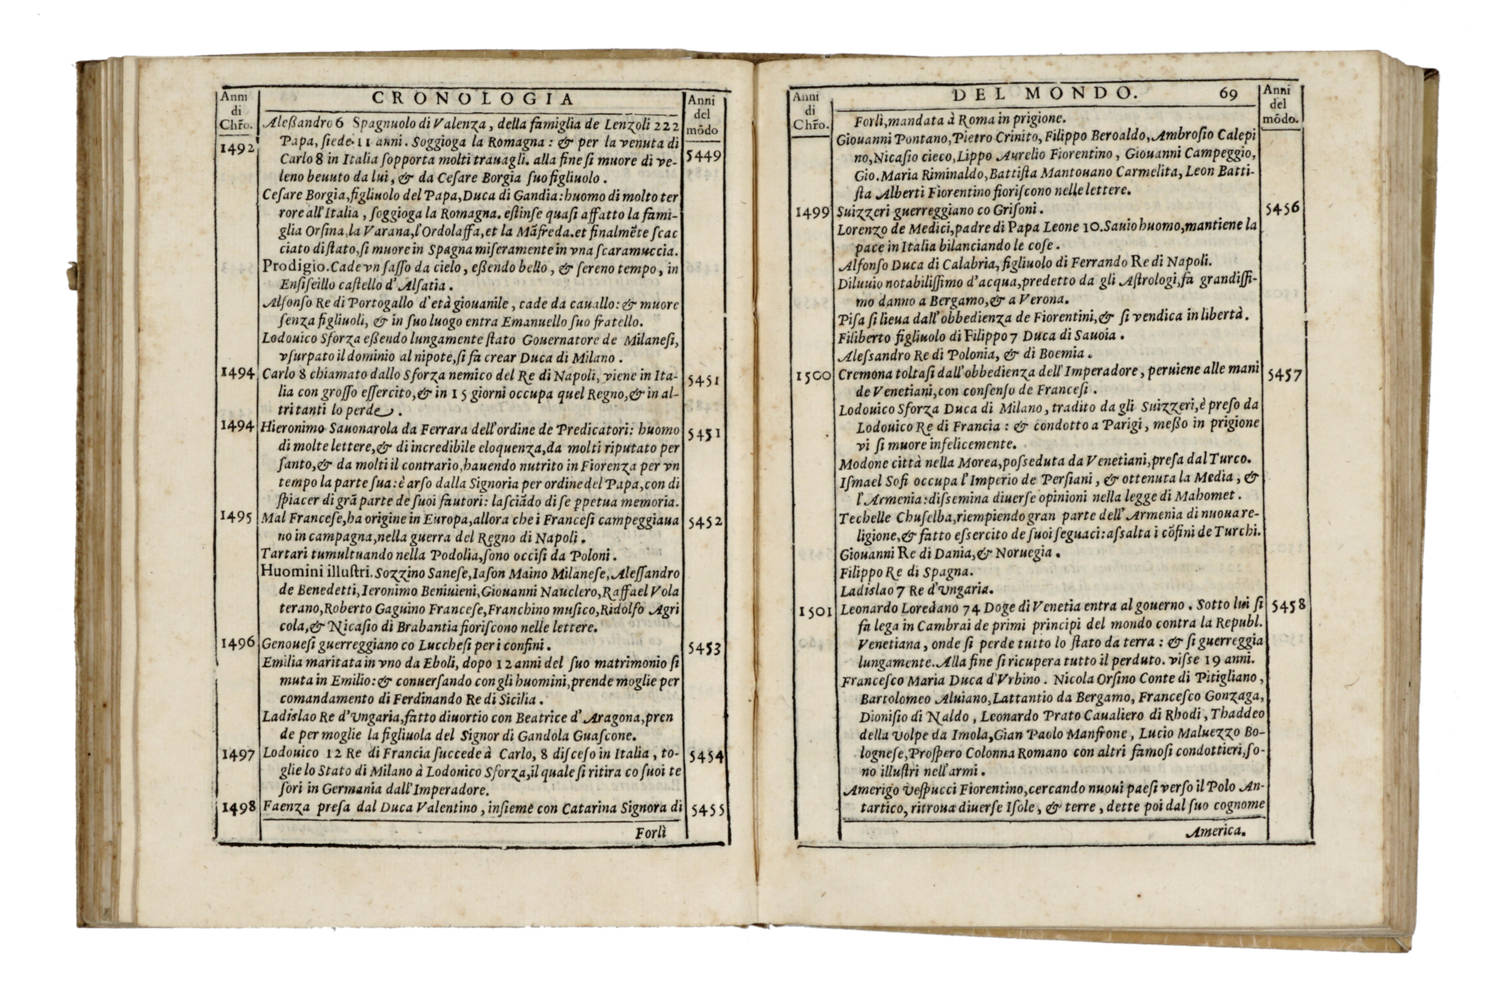 Anni di Chr̃o.
CRONOLOGIA
Anni del mōdo
Aleßandro 6 Spagnuolo di Valenza, della famiglia de Lenzoli 222
1492 Papa, siede 11 anni. Soggioga la Romagna: & per la venuta di 5449
Carlo 8 in Italia sopporta molti trauagli. alla fine si muore di ve-
leno beuuto da lui, & da Cesare Borgia suo figliuolo.
Cesare Borgia, figliuolo del Papa, Duca di Gandia: huomo di molto ter
rore all'Italia, soggioga la Romagna. estinse quasi affatto la fami-
glia Orsina, la Varana, l'Ordolaffa, et la Mãfreda. et finalmẽte scac
ciato di stato, si muore in Spagna miseramente in vna scaramuccia.
Prodigio. Cade vn sasso da cielo, eßendo bello, & sereno tempo, in
Ensiseillo castello d'Alsatia.
Alfonso Re di Portogallo d'età giouanile, cade da cauallo: & muore
senza figliuoli, & in suo luogo entra Emanuello suo fratello.
Lodouico Sforza eßendo lungamente stato Gouernatore de Milanesi,
vsurpato il dominio al nipote, si fà crear Duca di Milano.
1494 Carlo 8 chiamato dallo Sforza nemico del Re di Napoli, viene in Ita- 5451
lia con grosso essercito, & in 15 giorni occupa quel Regno, & in al-
tri tanti lo perde.
1494 Hieronimo Sauonarola da Ferrara dell'ordine de Predicatori: huomo 5451
di molte lettere, & di incredibile eloquenza, da molti riputato per
santo, & da molti il contrario, hauendo nutrito in Fiorenza per vn
tempo la parte sua: è arso dalla Signoria per ordine del Papa, con di
spiacer di grã parte de suoi fautori: lasciãdo di se ppetua memoria.
1495 Mal Francese, ha origine in Europa, allora che i Francesi campeggiaua 5452
no in campagna, nella guerra del Regno di Napoli.
Tartari tumultuando nella Podolia, sono occisi da Poloni.
Huomini illustri. Sozzino Sanese, Iason Maino Milanese, Alessandro
de Benedetti, Ieronimo Beniuieni, Giouanni Nauclero, Raffael Vola
terano, Roberto Gaguino Francese, Franchino musico, Ridolfo Agri
cola, & Nicasio di Brabantia fioriscono nelle lettere.
1496 Genouesi guerreggiano co Lucchesi per i confini. 5453
Emilia maritata in vno da Eboli, dopo 12 anni del suo matrimonio si
muta in Emilio: & conuersando con gli huomini, prende moglie per
comandamento di Ferdinando Re di Sicilia.
Ladislao Re d'Vngaria, fatto diuortio con Beatrice d'Aragona, pren
de per moglie la figliuola del Signor di Gandola Guascone.
1497 Lodouico 12 Re di Francia succede à Carlo, 8 disceso in Italia, to- 5454
glie lo Stato di Milano à Lodouico Sforza, il quale si ritira co suoi te
sori in Germania dall'Imperadore.
1498 Faenza presa dal Duca Valentino, insieme con Catarina Signora di 5455
Forlì
Anni di Chr̃o.
DEL MONDO. 69
Anni del mōdo.
Forlì, mandata à Roma in prigione.
Giouanni Pontano, Pietro Crinito, Filippo Beroaldo, Ambrosio Calepi
no, Nicasio cieco, Lippo Aurelio Fiorentino, Giouanni Campeggio,
Gio. Maria Riminaldo, Battista Mantouano Carmelita, Leon Batti-
sta Alberti Fiorentino fioriscono nelle lettere.
1499 Suizzeri guerreggiano co Grisoni. 5456
Lorenzo de Medici, padre di Papa Leone 10. Sauio huomo, mantiene la
pace in Italia bilanciando le cose.
Alfonso Duca di Calabria, figliuolo di Ferrando Re di Napoli.
Diluuio notabilissimo d'acqua, predetto da gli Astrologi, fà grandissi-
mo danno a Bergamo, & a Verona.
Pisa si lieua dall'obbedienza de Fiorentini, & si vendica in libertà.
Filiberto figliuolo di Filippo 7 Duca di Sauoia.
Alessandro Re di Polonia, & di Boemia.
1500 Cremona toltasi dall'obbedienza dell'Imperadore, peruiene alle mani 5457
de Venetiani, con consenso de Francesi.
Lodouico Sforza Duca di Milano, tradito da gli Suizzeri, è preso da
Lodouico Re di Francia: & condotto a Parigi, meßo in prigione
vi si muore infelicemente.
Modone città nella Morea, posseduta da Venetiani, presa dal Turco.
Ismael Sofi occupa l'Imperio de Persiani, & ottenuta la Media, &
l'Armenia: dissemina diuerse opinioni nella legge di Mahomet.
Techelle Chuselba, riempiendo gran parte dell'Armenia di nuoua re-
ligione, & fatto essercito de suoi seguaci: assalta i cõfini de Turchi.
Giouanni Re di Dania, & Noruegia.
Filippo Re di Spagna.
Ladislao 7 Re d'Vngaria.
1501 Leonardo Loredano 74 Doge di Venetia entra al gouerno. Sotto lui si 5458
fà lega in Cambrai de primi principi del mondo contra la Republ.
Venetiana, onde si perde tutto lo stato da terra: & si guerreggia
lungamente. Alla fine si ricupera tutto il perduto. visse 19 anni.
Francesco Maria Duca d'Vrbino. Nicola Orsino Conte di Pitigliano,
Bartolomeo Aluiano, Lattantio da Bergamo, Francesco Gonzaga,
Dionisio di Naldo, Leonardo Prato Caualiero di Rhodi, Thaddeo
della Volpe da Imola, Gian Paolo Manfrone, Lucio Maluezzo Bo-
lognese, Prospero Colonna Romano con altri famosi condottieri, so-
no illustri nell'armi.
Amerigo Vespucci Fiorentino, cercando nuoui paesi verso il Polo An-
tartico, ritroua diuerse Isole, & terre, dette poi dal suo cognome
America.